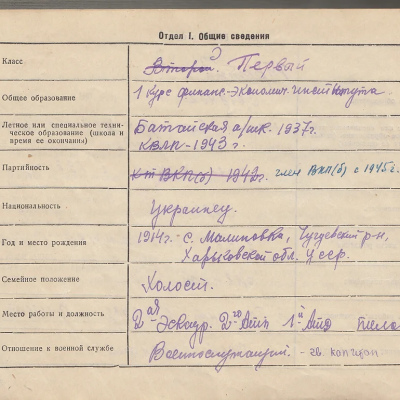 Отдел I. Общие сведения
Класс
Второй Первый
Общее образование
1 курс финанс.-экономич. института.
Летное или специальное техни-
ческое образование (школа и
время ее окончания)
Батайская а/шк. 1937г.
КВЛП - 1943 г.
Партийность
ВКП(б) 1942г. член ВКП(б) с 1945г.
Национальность
Украинец.
Год и место рождения
1914г. - с. Малиновка, Чугуевский р-н,
Харьковской обл. УССР.
Семейное положение
Холост.
Место работы и должность
2ая Эскадр. 2го 1й
Отношение к военной службе
Военнослужащий. - гв. капитан